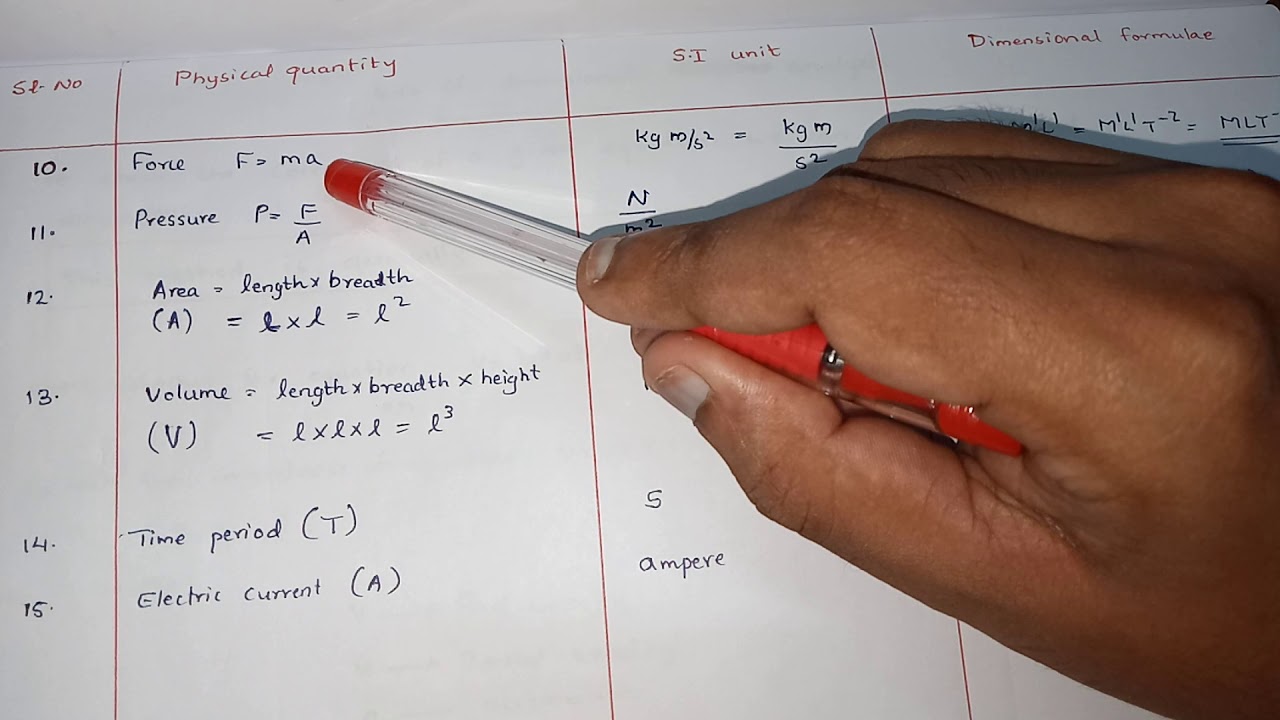 Sl. No Physical quantity S.I unit Dimensional formulae
10. Force F = ma kg m/s² = kg m / s² M¹L¹T⁻² = MLT⁻
11. Pressure P = F / A N / m²
12. Area = length x breadth
(A) = l x l = l²
13. Volume = length x breadth x height
(V) = l x l x l = l³
14. Time period (T) S
15. Electric current (A) ampere